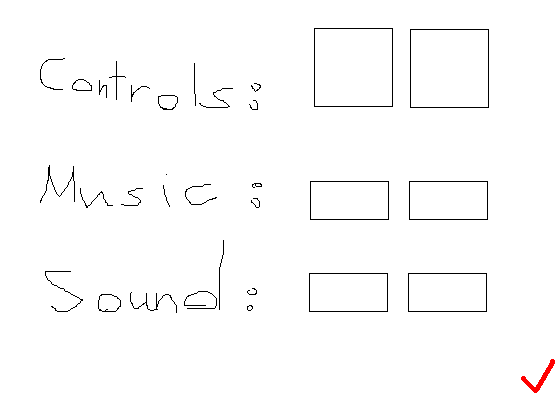 Controls:
Music:
Sound: